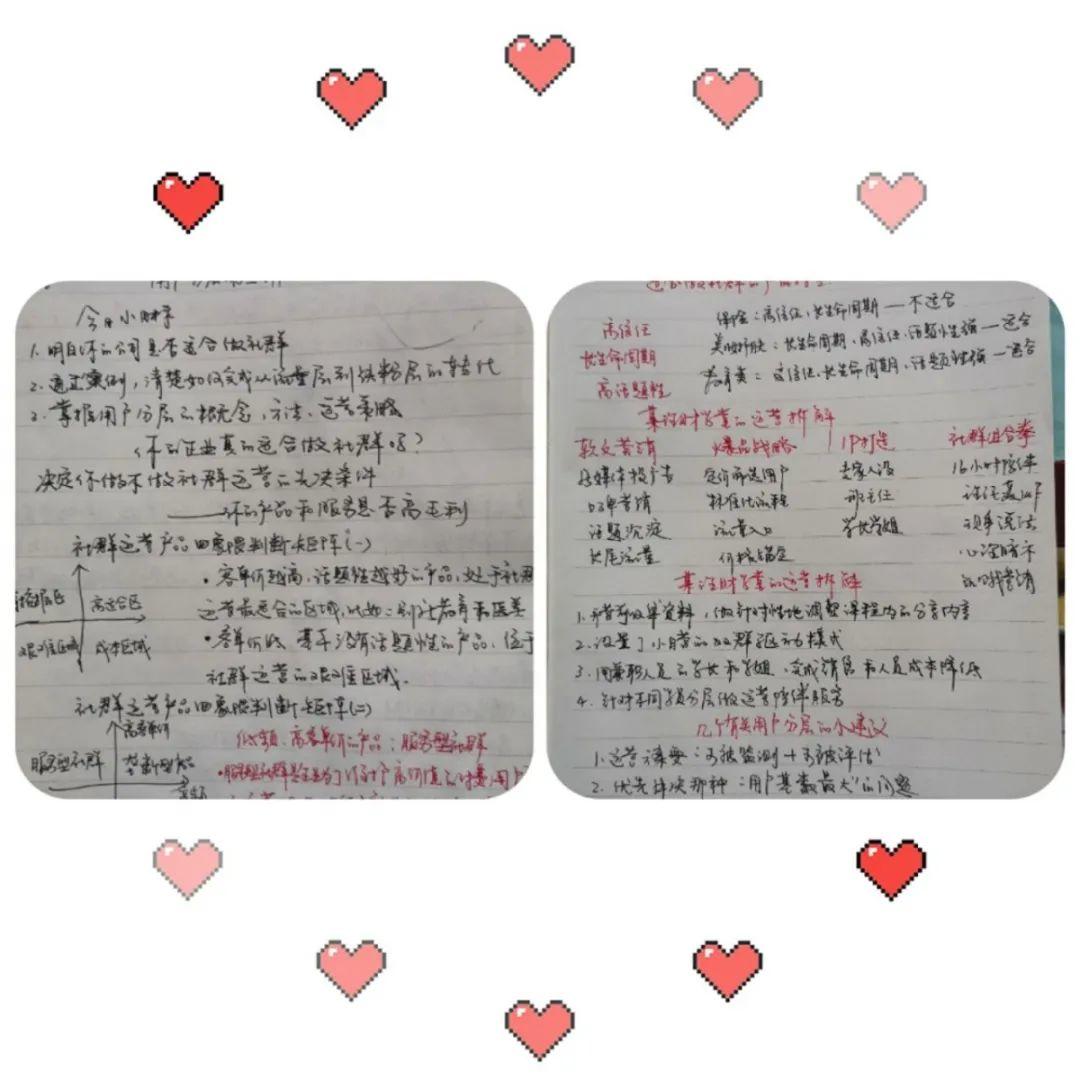 今日小财季
1. 明白你的公司是否适合做社群
2. 通过案例，清楚如何完成从流量层到铁粉层的转化
3. 掌握用户分层的概念，方法、运营策略
你的企业真的适合做社群吗？
决定你做不做社群运营的先决条件
——你的产品和服务是否高毛利
社群运营产品四象限判断矩阵(一)
高适合区
艰难区域
成本区域
• 客单价越高，话题性越好的产品，处于社群
运营最适合的区域，比如：别社教育和医美
• 客单价低、基本没有话题性的产品，位于
社群运营的艰难区域.
社群运营产品四象限判断矩阵(二)
高客单价
服务型社群
低频、高客单价的产品：服务型社群
适合做社群的
高信任
长生命周期
高话题性
保险：高信任、长生命周期——不适合
美妆护肤：长生命周期、高信任、话题性强——适合
教育类：高信任、长生命周期、话题性强——适合
某理财学堂的运营拆解
软文营销 爆品战略 IP打造 社群组合拳
自媒体投广告 定价筛选用户 专家人设 16小时陪伴
口碑营销 标准化流程 班主任
话题沉淀 流量入口 学长学姐 现身说法
长尾流量 价格锚定 心理暗示
营销
某理财学堂的运营拆解
1. 开营要收集资料，做针对性地调整课程内的分享内容
2. 设置了小月营的双群驱动模式
3. 用兼职人员的学长和学姐，完成销售和人员成本降低
4. 针对不同等级分层做运营陪伴服务
几个有关用户分层的小建议
1. 运营课要：可被监测+可被评估
2. 优先解决那种“用户基数最大”的问题